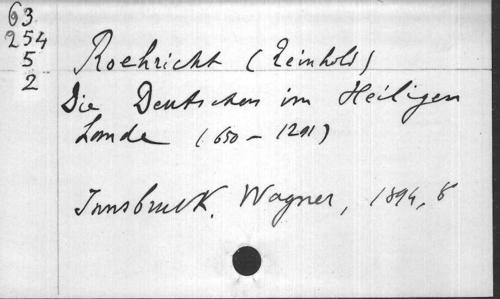 63
254
5
2
Roehricht (Reinhold)
Die Deutschen im Heiligen
Lande (650 – 1291)
Innsbruck, Wagner, 1894, 8